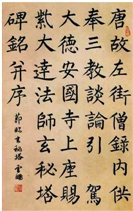 唐故左街僧錄內供
奉三教談論引駕
大德安國寺上座賜
紫大達法師玄秘塔
碑銘并序
節臨玄秘塔